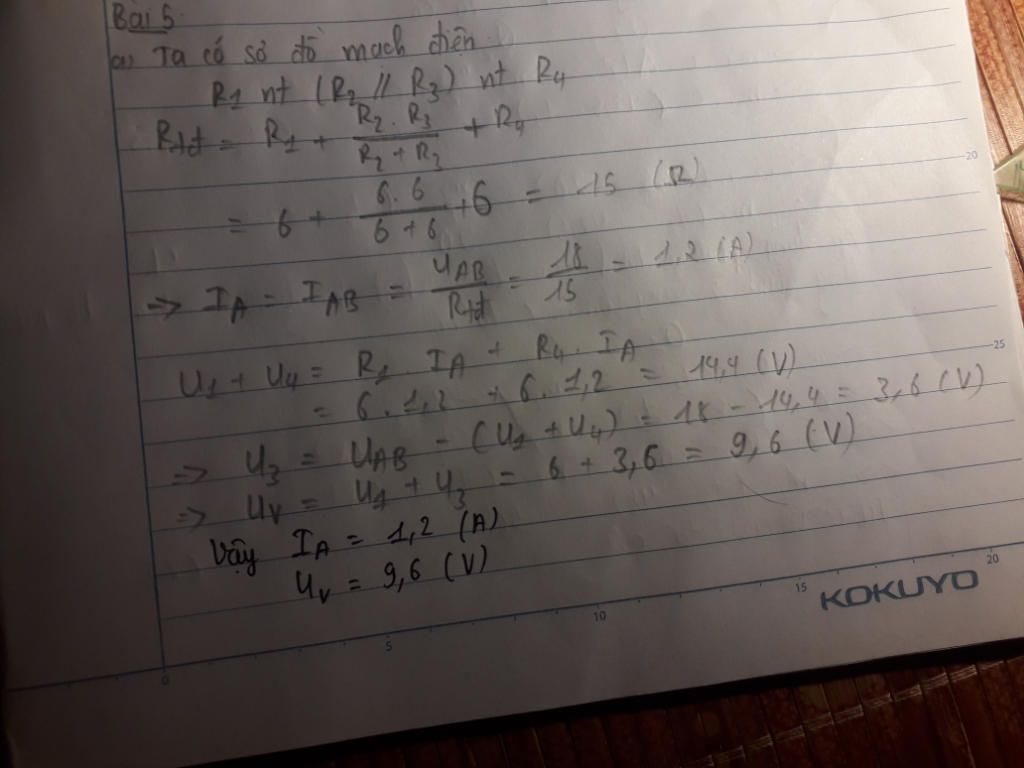 Bài 5
a) Ta có sơ đồ mạch điện
R1 nt (R2 // R3) nt R4
Rtđ = R1 + \frac{R2 . R3}{R2 + R3} + R4
= 6 + \frac{6.6}{6+6} + 6 = 15 (Ω)
=> IA = IAB = \frac{UAB}{Rtđ} = \frac{18}{15} = 1,2 (A)
U1 + U4 = R1 . IA + R4 . IA
= 6 . 1,2 + 6 . 1,2 = 14,4 (V)
=> U3 = UAB - (U1 + U4) = 18 - 14,4 = 3,6 (V)
=> UV = U1 + U3 = 6 + 3,6 = 9,6 (V)
Vậy IA = 1,2 (A)
UV = 9,6 (V)
20
25
0 5 10 15 20
KOKUYO